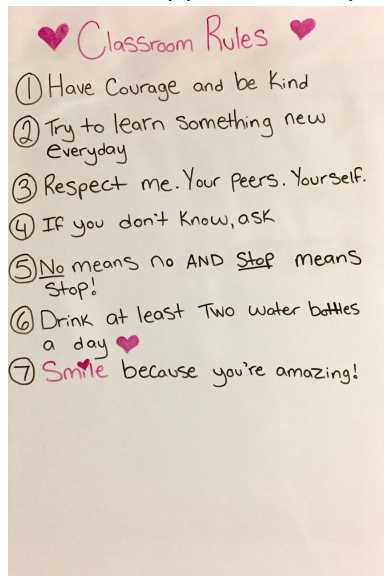 Classroom Rules
1 Have Courage and be Kind
2 Try to learn something new
everyday
3 Respect me. Your Peers. Yourself.
4 If you don't know, ask
5 No means no AND Stop means
Stop!
6 Drink at least Two water bottles
a day
7 Smile because you're amazing!